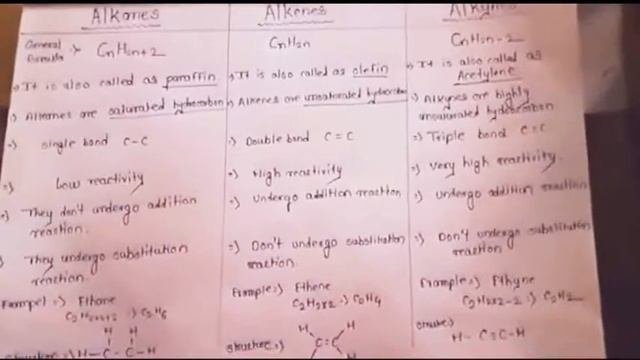 Alkanes
General Formula :- CnH2n+2
It is also called as paraffin
Alkanes are saturated hydrocarbon
=) Single bond C-C
=) Low reactivity
=) They don't undergo addition
reaction.
They undergo substitution
reaction.
Exampel =) Ethane
C2H2x2+2 =) C2H6
Structure =)
H H
H-C-C-H
Alkenes
CnH2n
It is also called as olefin
Alkenes are unsaturated hydrocarbon
=) Double bond C=C
=) High reactivity
=) Undergo addition reaction
=) Don't undergo substitution
reaction.
Example =) Ethene
C2H2x2 =) C2H4
Structure =)
H H
C=C
Alkynes
CnH2n-2
It is also called as
Acetylene
=) Alkynes are highly
unsaturated hydrocarbon
=) Triple bond C≡C
=) Very high reactivity.
=) Undergo addition reaction
=) Don't undergo substitution
reaction
Example =) Ethyne
C2H2x2-2 =) C2H2
H-C≡C-H